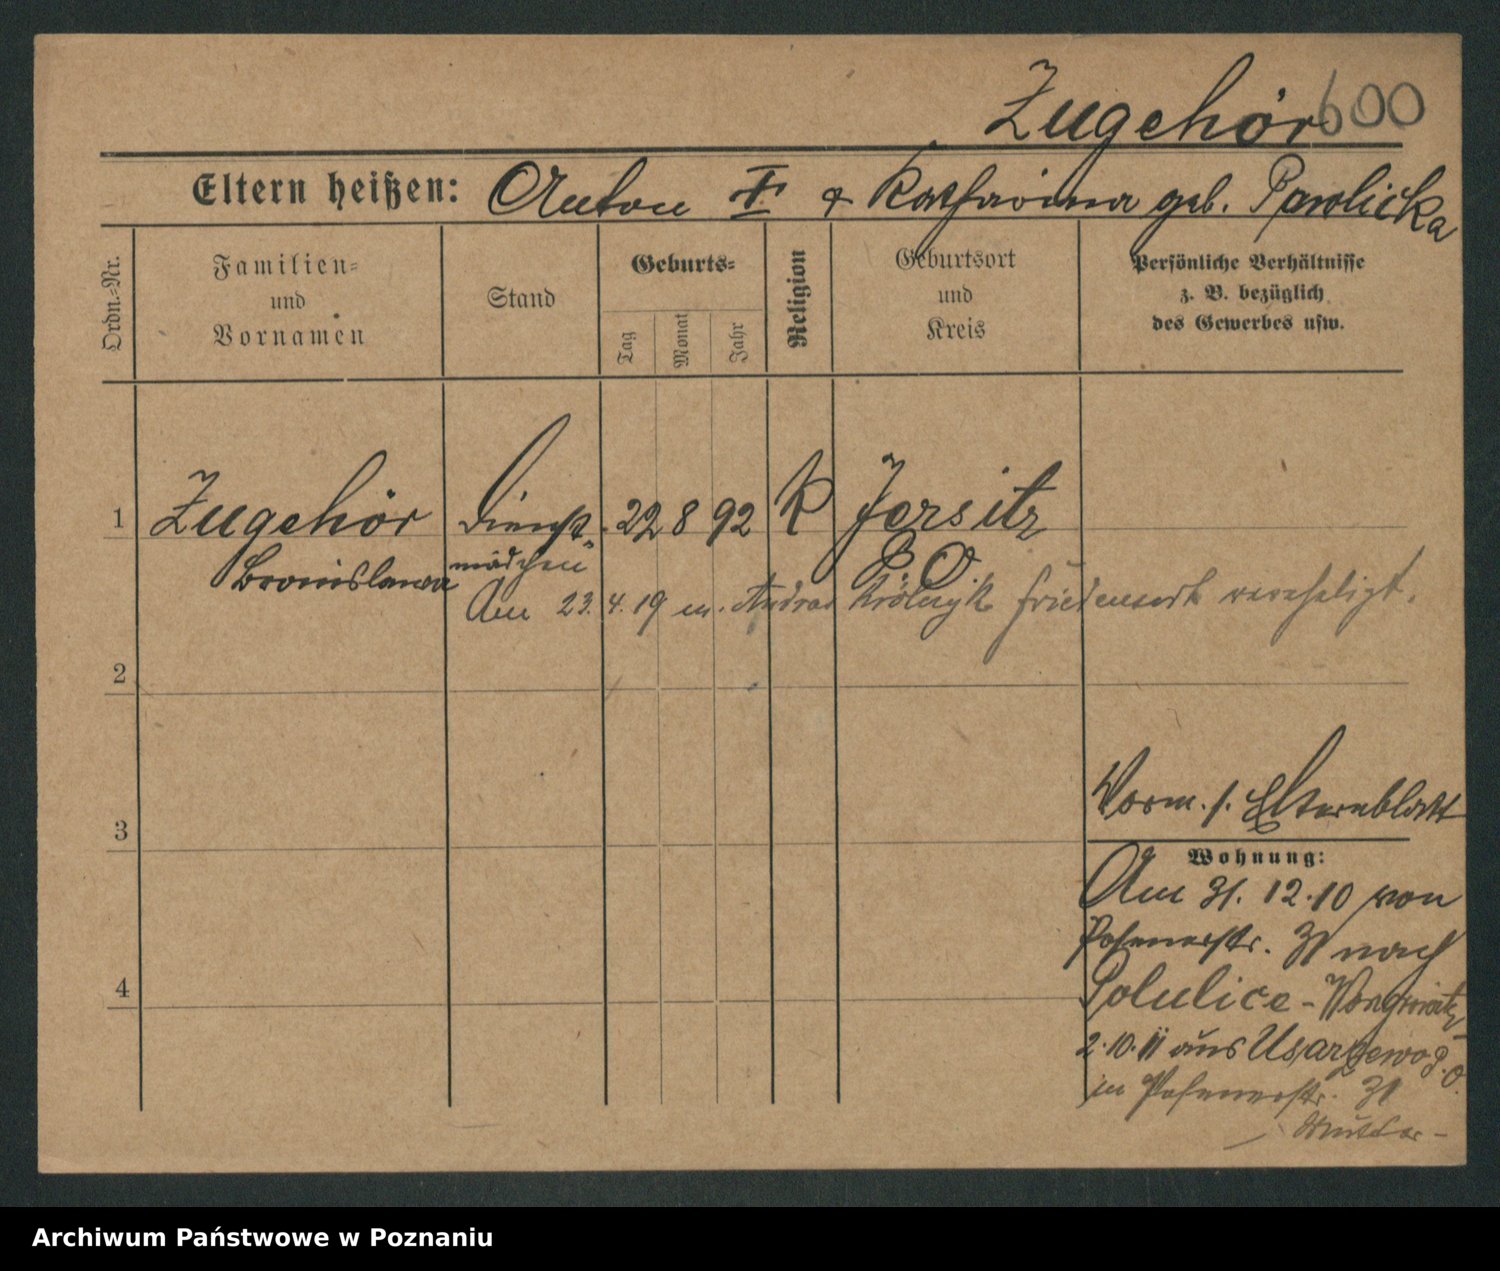 Zugehör 600
Eltern heißen: Anton I & Katharina geb. Pawlicka
Ordn.-Nr.
Familien-
und
Vornamen
Stand
Geburts-
Tag
Monat
Jahr
Religion
Geburtsort
und
Kreis
Persönliche Verhältnisse
z. B. bezüglich
des Gewerbes usw.
1 Zugehör Dienst- 22 8 92 K Jersitz
Bronislawa mädchen P. O
Am 23. 4. 19 m. Friedensort vereheligt.
2
3
4
Vorm. s. Elternblatt
Wohnung:
Am 31. 12. 10 von
Posenerstr. 31 nach
Polulice - Wongrowitz
2. 10. 11 aus Usarzewo P. O.
in Posenerstr. 31
Mutter -
Archiwum Państwowe w Poznaniu